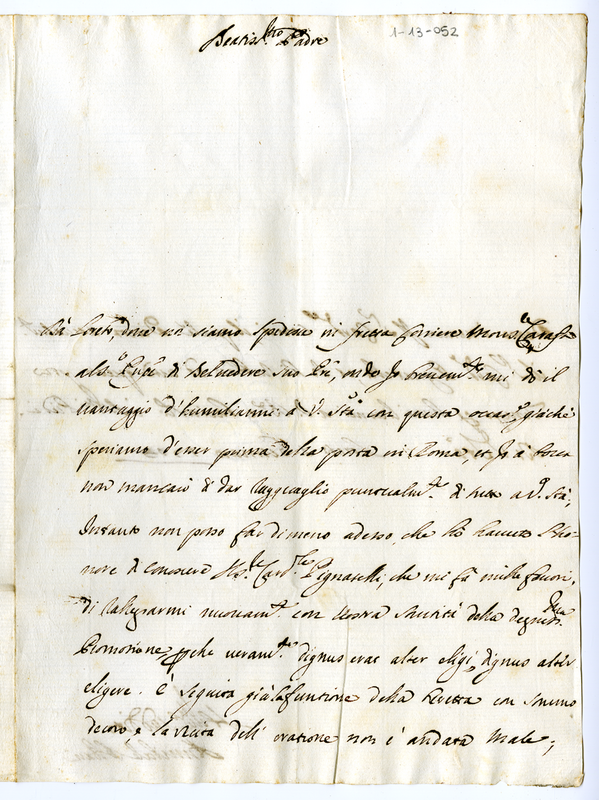 Beatis.mo Padre
1-13-052
Da Loreto, dove noi siamo spedisce in fretta Corriere Mons.r Carafa
al S.r Prñpe di Belvedere suo Pře, onde Io brevem.te mi dò il
vantaggio d'humiliarmi à V. Stà con questa occas.e, giàchè
speriamo d'esser prima della posta in Roma, et Io à bocca
non mancarò di dar ragguaglio puntualm.te di tutto a V. Stà,
Intanto non posso far di meno adesso, che hò havuto l'ho-
nore di conoscere il S.r Card.le Pignatelli, che mi fà mille favori,
di rallegrarmi nuovam.te con Vostra Santità della degniss.ma
Promotione, perche veram.te dignus erat alter eligi, dignus alter
eligere. È seguita già la funtione della Beretta con sommo
decoro, e la recita dell'oratione non è andata male;